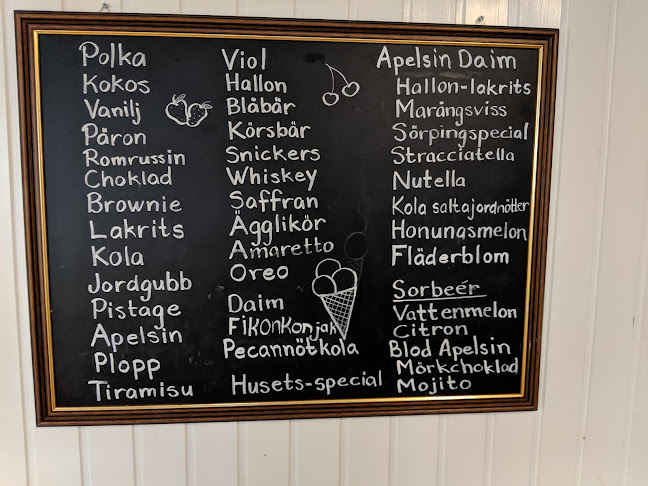 Polka
Kokos
Vanilj
Päron
Romrussin
Choklad
Brownie
Lakrits
Kola
Jordgubb
Pistage
Apelsin
Plopp
Tiramisu
Viol
Hallon
Blåbär
Körsbär
Snickers
Whiskey
Saffran
Ägglikör
Amaretto
Oreo
Daim
Fikonkonjak
Pecannötkola
Husets-special
Apelsin Daim
Hallon-lakrits
Marängsviss
Sörpingspecial
Stracciatella
Nutella
Kola saltajordnötter
Honungsmelon
Fläderblom
Sorbeér
Vattenmelon
Citron
Blod Apelsin
Mörkchoklad
Mojito